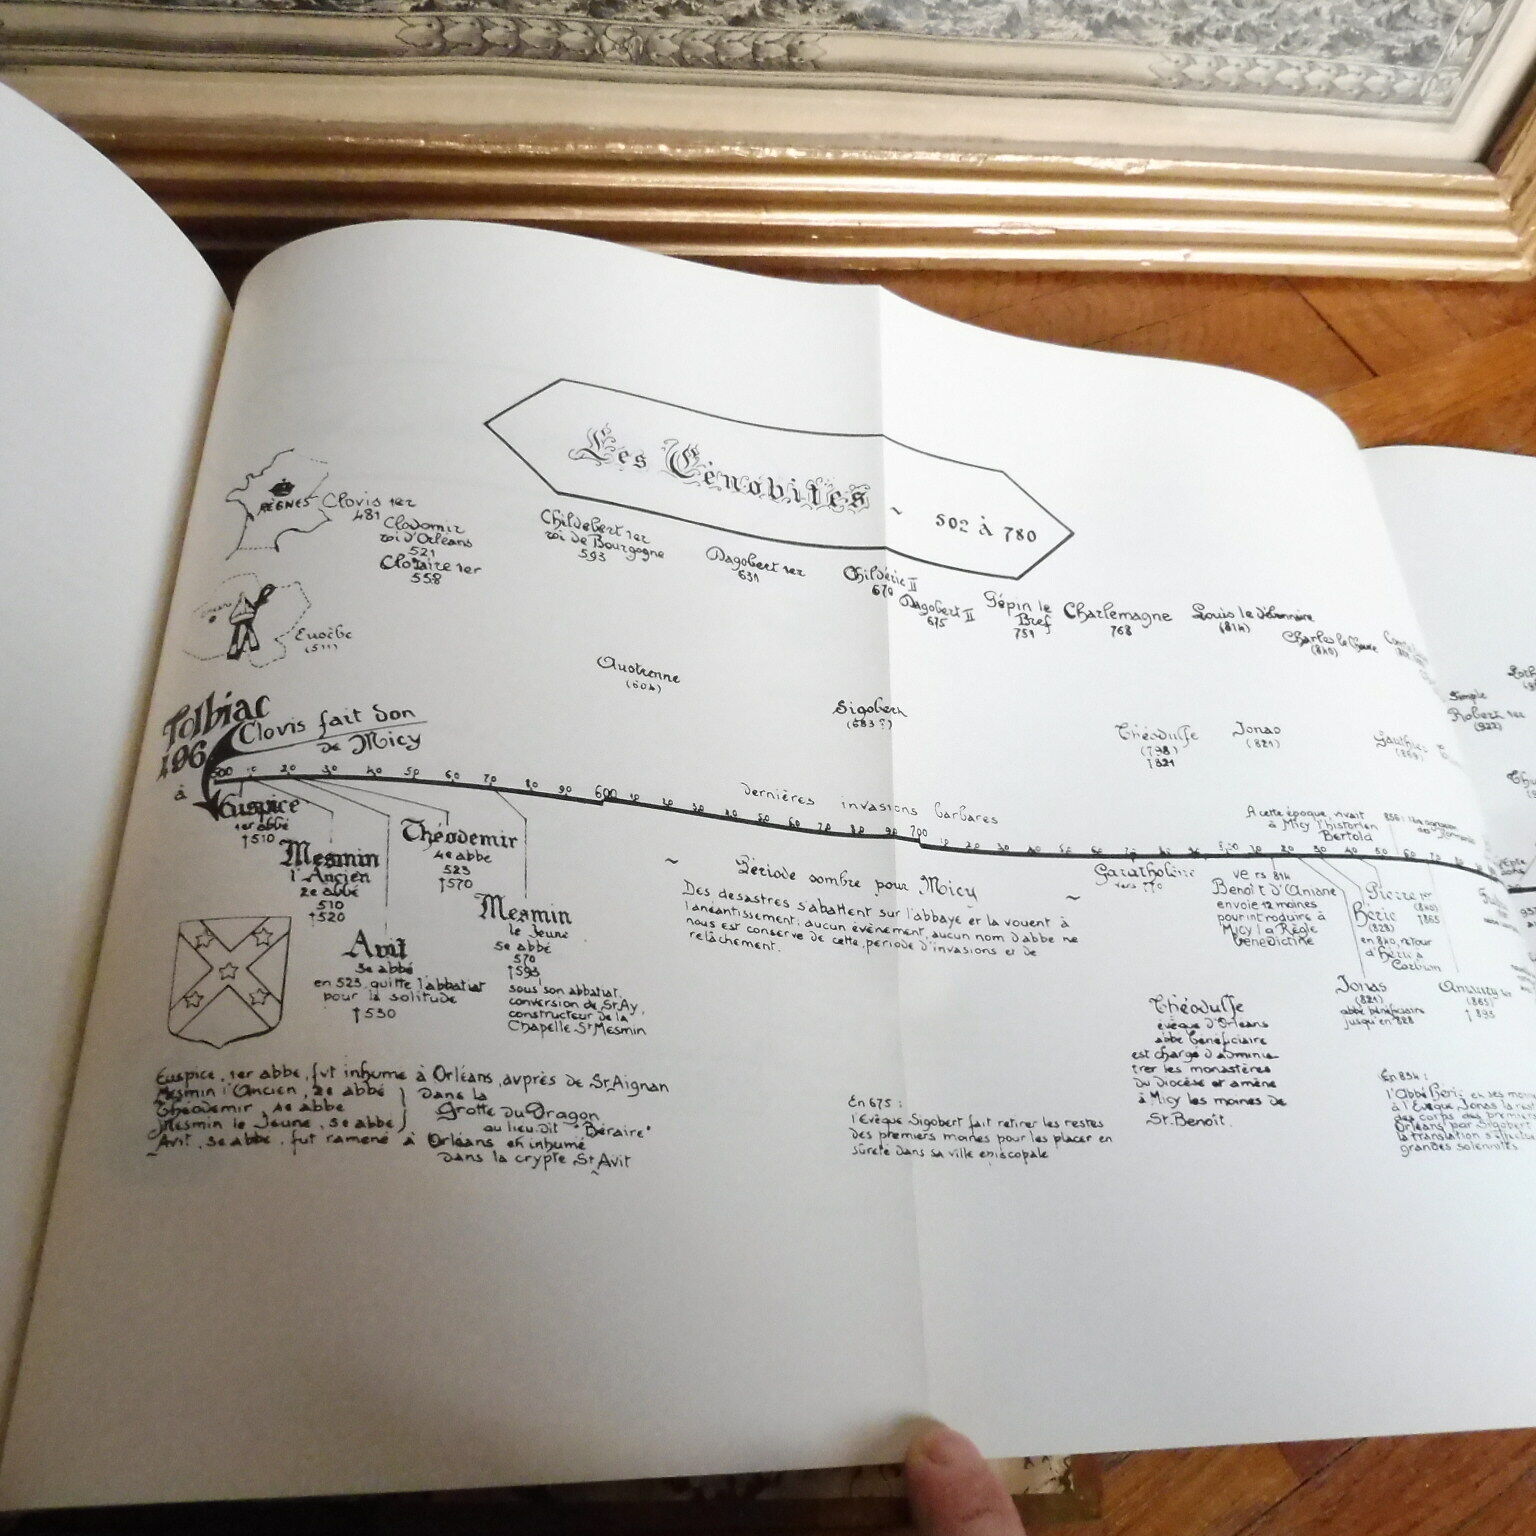 Les Cénobites ~ 502 à 780
RÈGNES
Clovis 1er
481
Clodomir
roi d'Orléans
521
Clotaire 1er
558
Childebert 1er
roi de Bourgogne
593
Dagobert 1er
631
Childéric II
670
Dagobert II
675
Pépin le
Bref
751
Charlemagne
768
Louis le débonnaire
(814)
Charles le Chauve
(840)
Robert 1er
(922)
Eusèbe
(511)
Austrenne
(604)
Sigobert
(683?)
Théodulfe
(798)
†821
Jonas
(821)
Tolbiac
496
à
Clovis fait don
de Micy
500 10 20 30 40 50 60 70 80 90 600 10 20 30 40 50 60 70 80 90 700 10 20 30 40 50 60 70 80 90 800 10 20 30 40 50 60 70
dernières invasions barbares
A cette époque, vivait
à Micy l'historien
Bertold
Euspice
1er abbé
†510
Mesmin
l'Ancien
2e abbé
510
†520
Avit
3e abbé
en 523 quitte l'abbatiat
pour la solitude
†530
Théodemir
4e abbé
523
†570
Mesmin
le Jeune
5e abbé
570
†593
sous son abbatiat,
conversion de St Ay,
constructeur de la
Chapelle St Mesmin
~ Période sombre pour Micy ~
Des désastres s'abattent sur l'abbaye et la vouent à
l'anéantissement; aucun évènement, aucun nom d'abbé ne
nous est conservé de cette période d'invasions et de
relâchement.
vers 770
vers 814
Benoît d'Aniane
envoie 12 moines
pour introduire à
Micy la Règle
Bénédictine
Pierre 1er
(840)
†865
Héric
(828)
en 840, retour
d'Héric à
Corbion
Jonas
(821)
abbé bénéficiaire
jusqu'en 828
Amaury
(865)
†893
Théodulfe
évêque d'Orléans
abbé bénéficiaire
est chargé d'adminis-
trer les monastères
du Diocèse et amène
à Micy les moines de
St. Benoît.
Euspice, 1er abbé, fut inhumé à Orléans, auprès de St Aignan
Mesmin l'Ancien, 2e abbé
Théodemir, 4e abbé
Mesmin le Jeune, 5e abbé
dans la
Grotte du Dragon
au lieu dit "Béraire"
Avit, 3e abbé, fut ramené à Orléans et inhumé
dans la crypte St Avit
En 675 :
l'Evêque Sigobert fait retirer les restes
des premiers moines pour les placer en
sûreté dans sa ville épiscopale
En 834 :
l'Abbé Héric
à l'Evêque Jonas
des corps des premiers
Orléans par Sigobert
la translation
grandes solennités